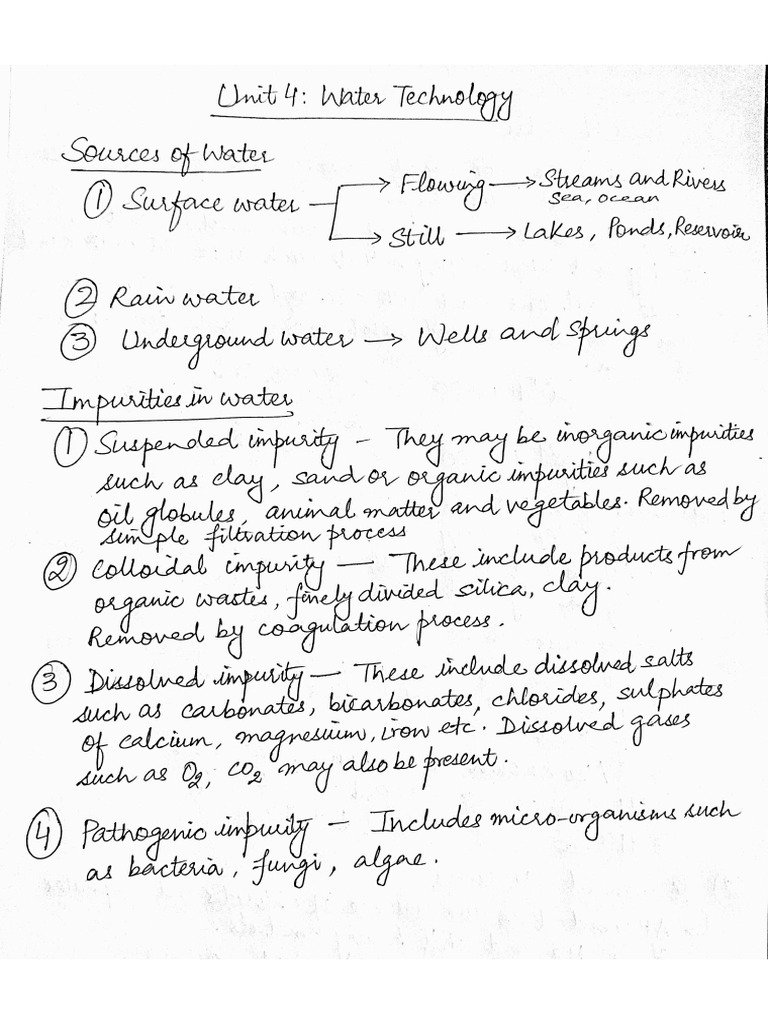 Unit 4: Water Technology
Sources of Water
① Surface water → Flowing → Streams and Rivers
Sea, ocean
→ Still → Lakes, Ponds, Reservoir
② Rain water
③ Underground water → Wells and Springs
Impurities in water
① Suspended impurity – They may be inorganic impurities
such as clay, sand or organic impurities such as
oil globules, animal matter and vegetables. Removed by
simple filtration process
② Colloidal impurity – These include products from
organic wastes, finely divided silica, clay.
Removed by coagulation process.
③ Dissolved impurity – These include dissolved salts
such as carbonates, bicarbonates, chlorides, sulphates
of calcium, magnesium, iron etc. Dissolved gases
such as O₂, CO₂ may also be present.
④ Pathogenic impurity – Includes micro-organisms such
as bacteria, fungi, algae.